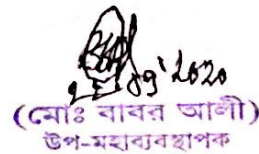 09'2020
(মোঃ বাবর আলী)
উপ-মহাব্যবস্থাপক